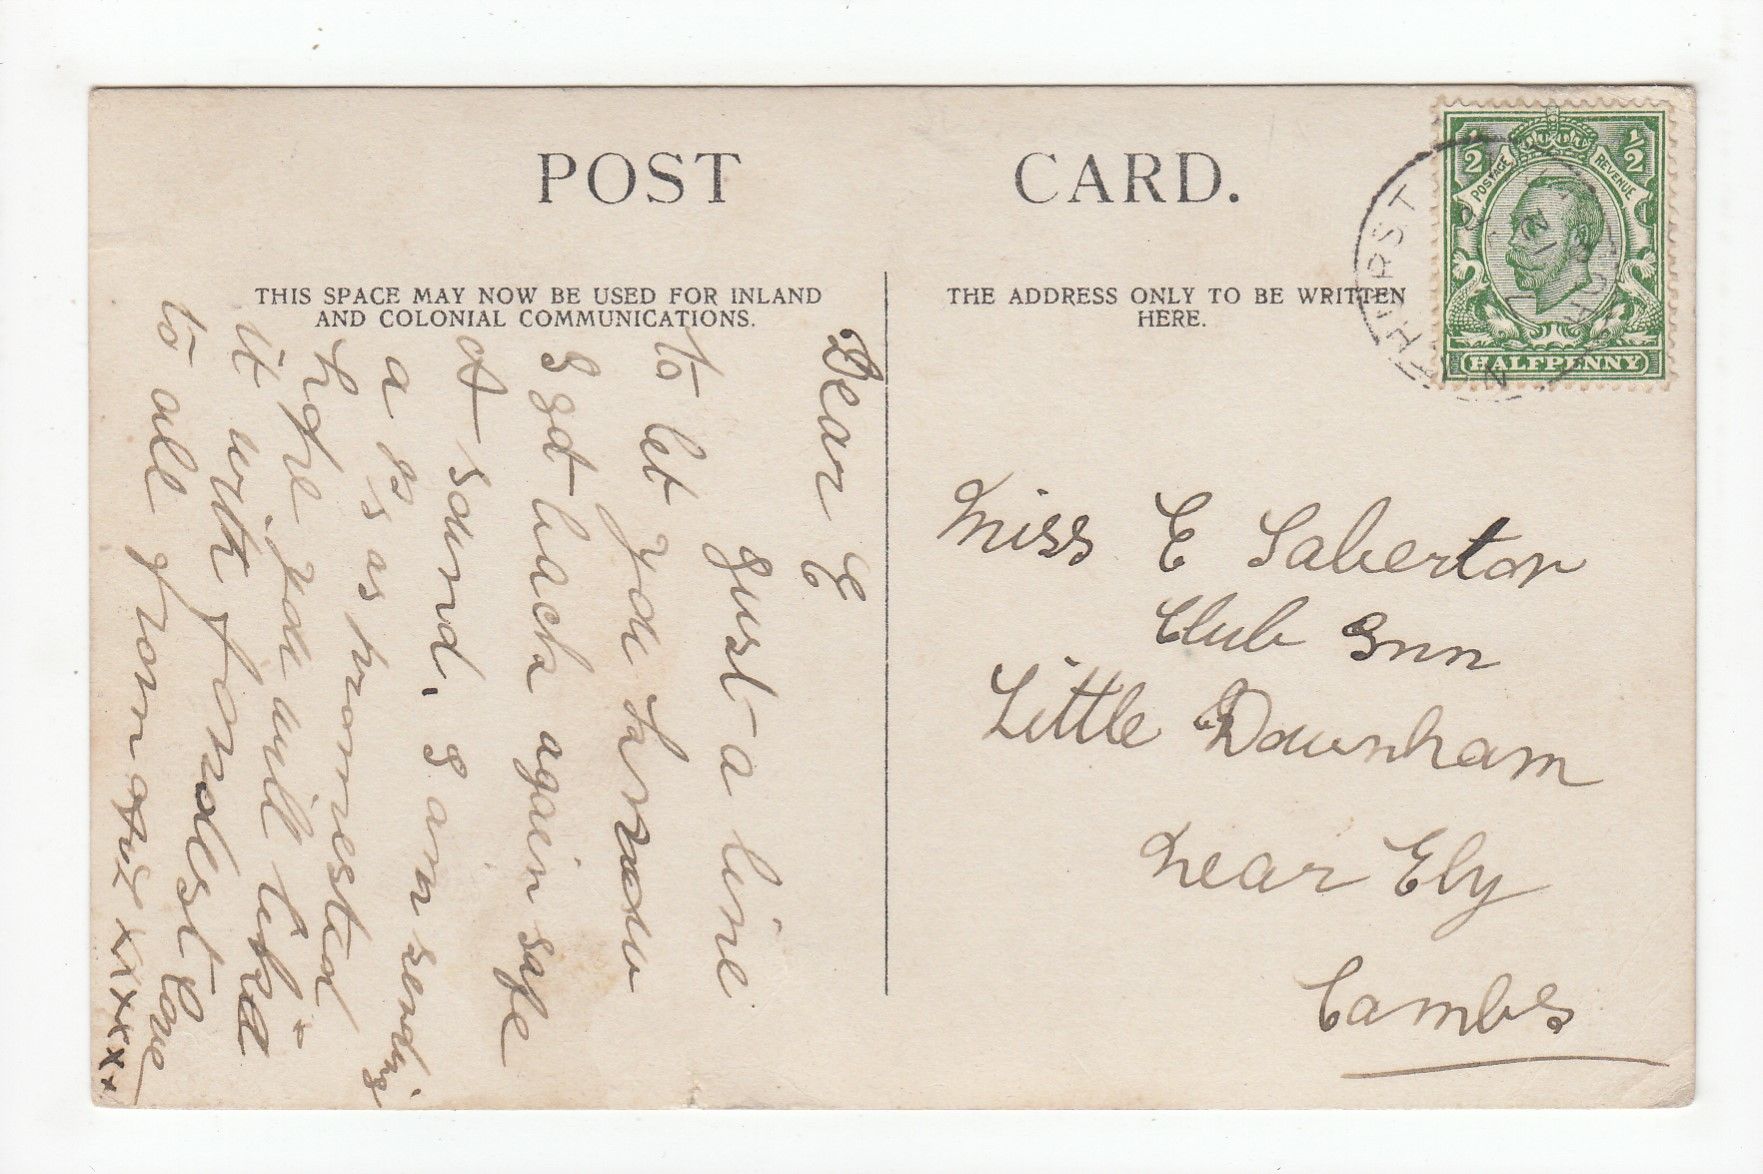 POST CARD.
THIS SPACE MAY NOW BE USED FOR INLAND
AND COLONIAL COMMUNICATIONS.
THE ADDRESS ONLY TO BE WRITTEN
HERE.
1/2 1/2
POSTAGE REVENUE
HALFPENNY
HURST
Dear E
Just a line
to let you know
I got back again safe
& sound. I am sending
a p's as promested
hope you will like
it with fondest love
to all from
xxxxxx
Miss E Saberton
Club Inn
Little Downham
Near Ely
Cambs